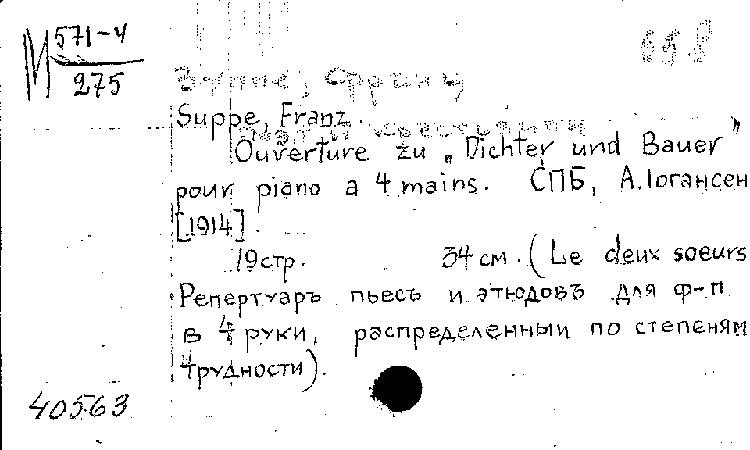 М 571-4
275
Зуппе, Франц
Suppe, Franz.
Ouverture zu „Dichter und Bauer"
pour piano a 4 mains. СПБ, А.Іогансен
[1914].
19 стр. 34 см. (Le deux soeurs
Репертуаръ пьесъ и этюдовъ для ф-п
в 4 руки, распределенный по степеням
трудности).
40563